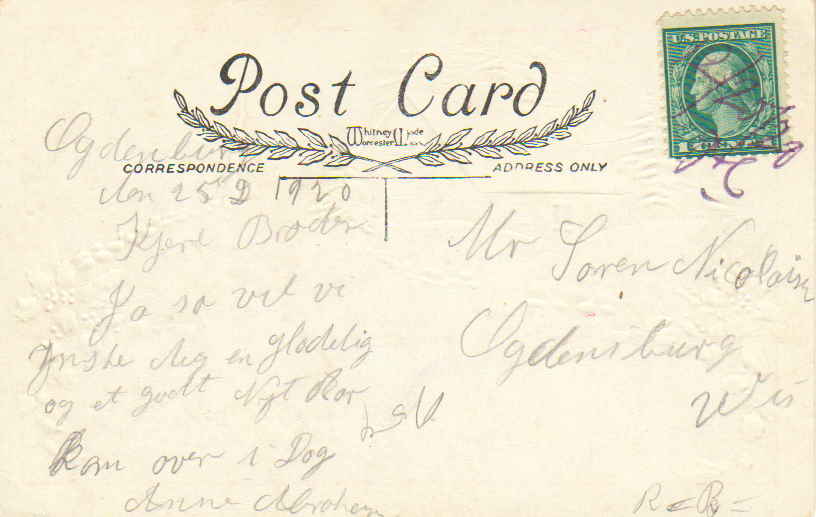 Post Card
Whitney Made
Worcester, Mass
CORRESPONDENCE
ADDRESS ONLY
U.S. POSTAGE
Ogdensburg
den 25 D 1920
Kjere Broder
Ja so vel vi
ynske deg en gladelig
og et godt Nyt Aar
Kom over i Dag
Anne Abraham
Mr Soren Nicolaisen
Ogdensburg
Wis
R = B =